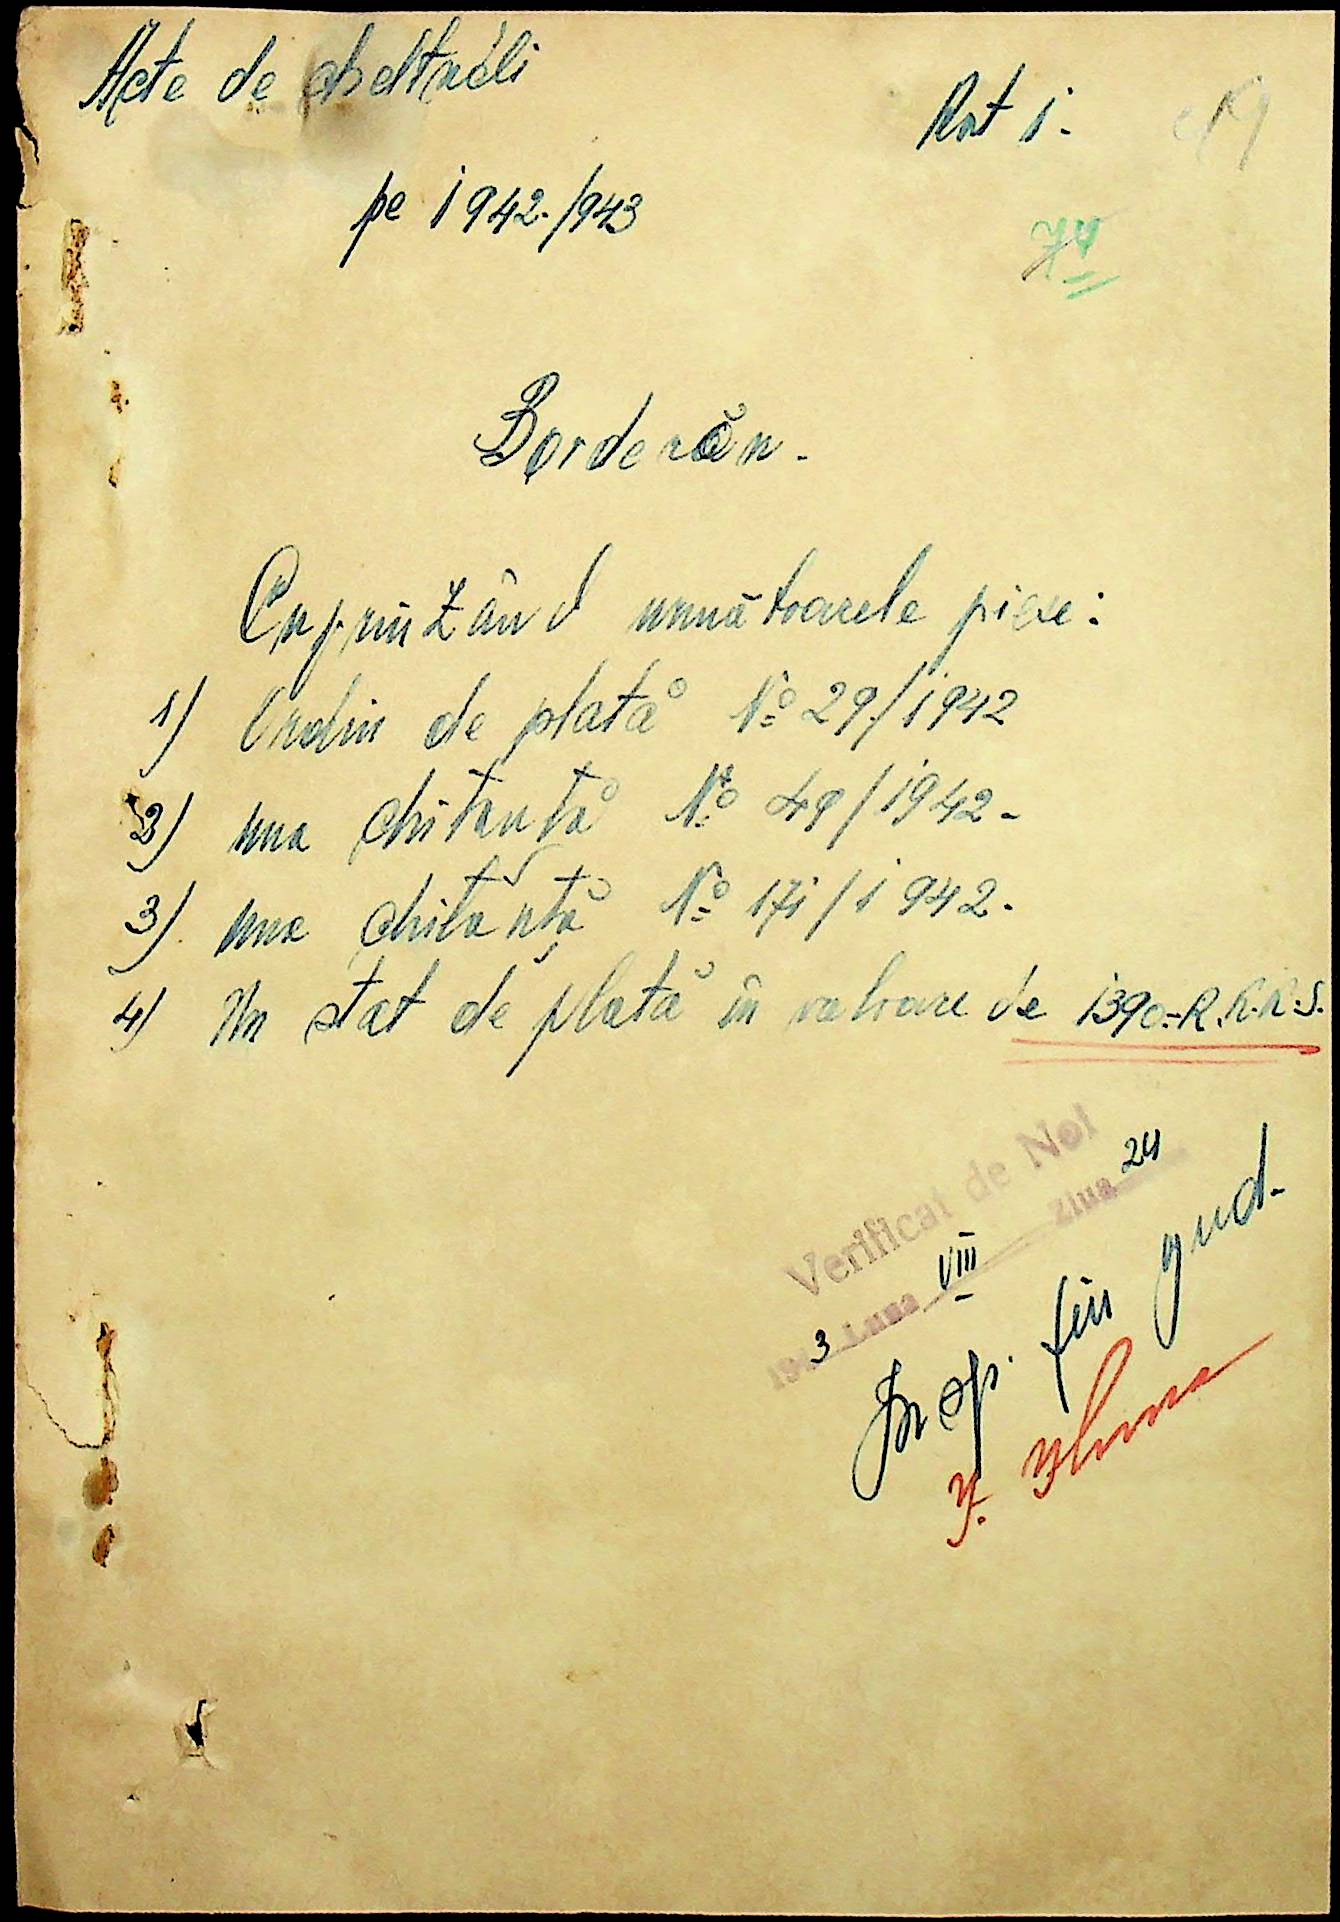 Acte de cheltuéli
Art 1.
pe 1942./943
74
Borderău.
Cuprinzând următoarele piese:
1) Ordin de plată No 29/1942
2) una chitanță No 49/1942.
3) una chitanță No 171/1942.
4) Un stat de plată în valoare de 1390.- R.K.K.S.
Verificat de Noi
1943 Luna VIII Ziua 24
Insp. fin jud.